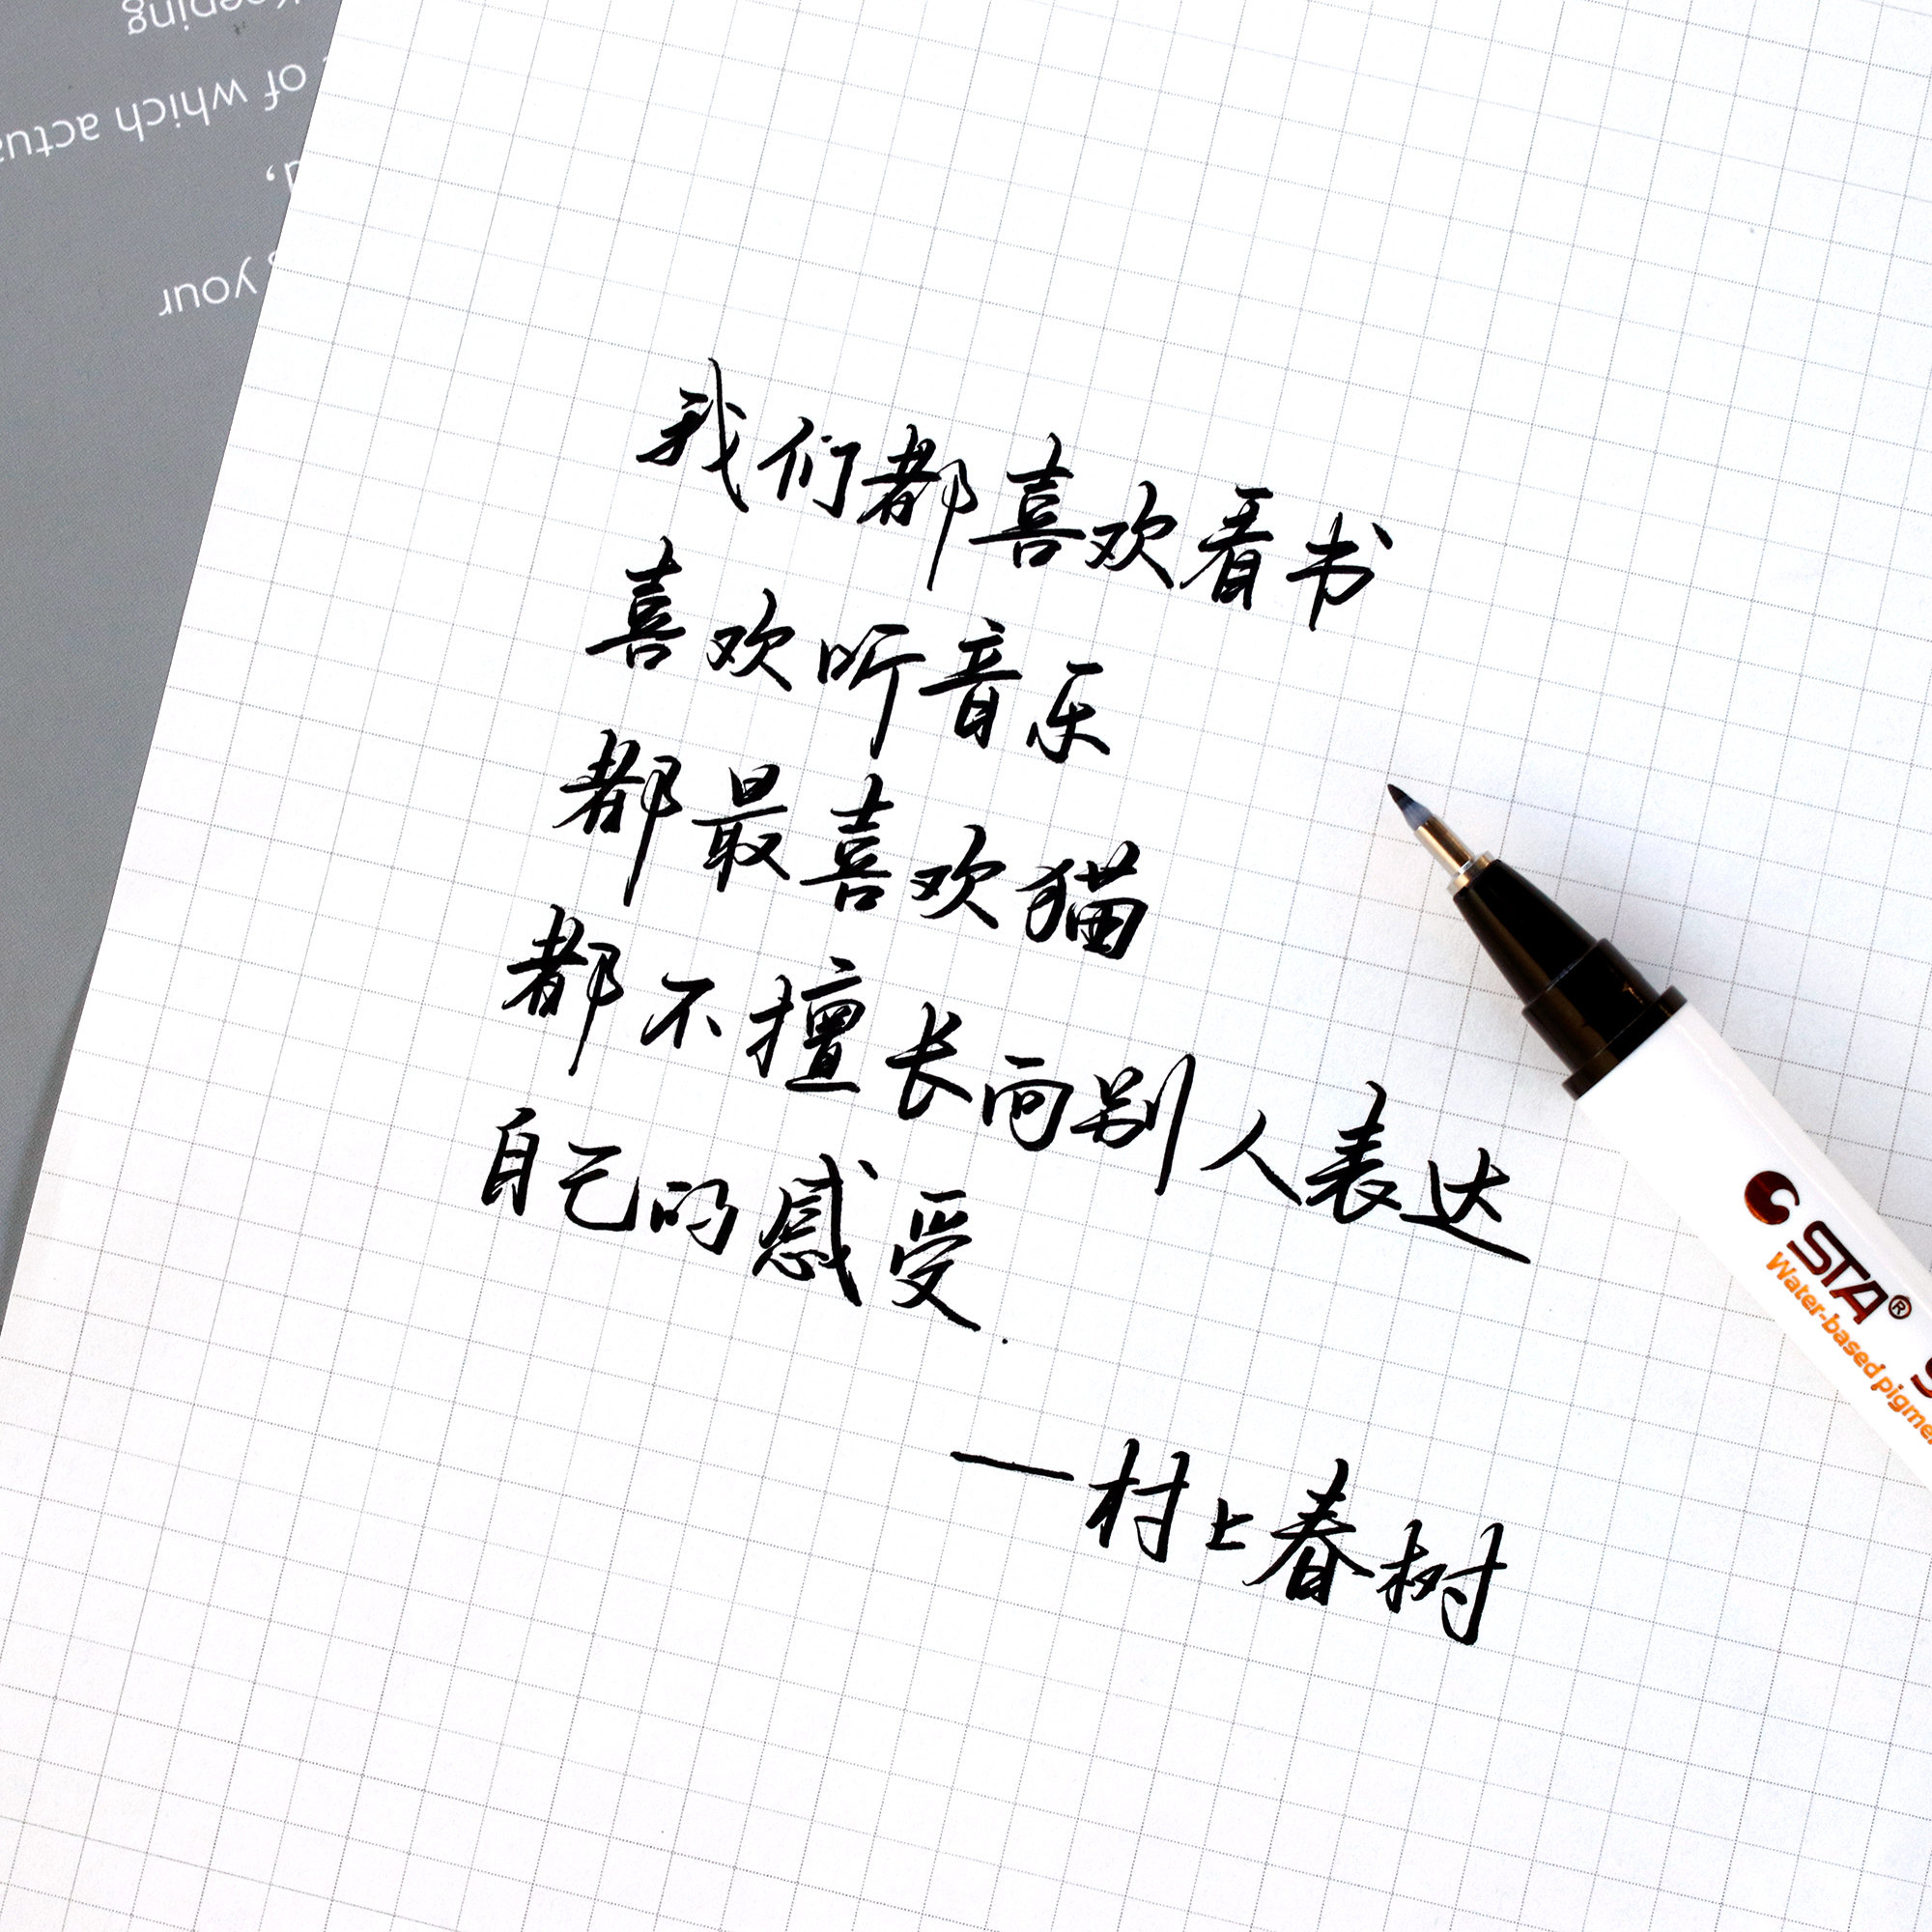 我们都喜欢看书
喜欢听音乐
都最喜欢猫
都不擅长向别人表达
自己的感受.
—村上春树
STA®
Water-based
your
of which